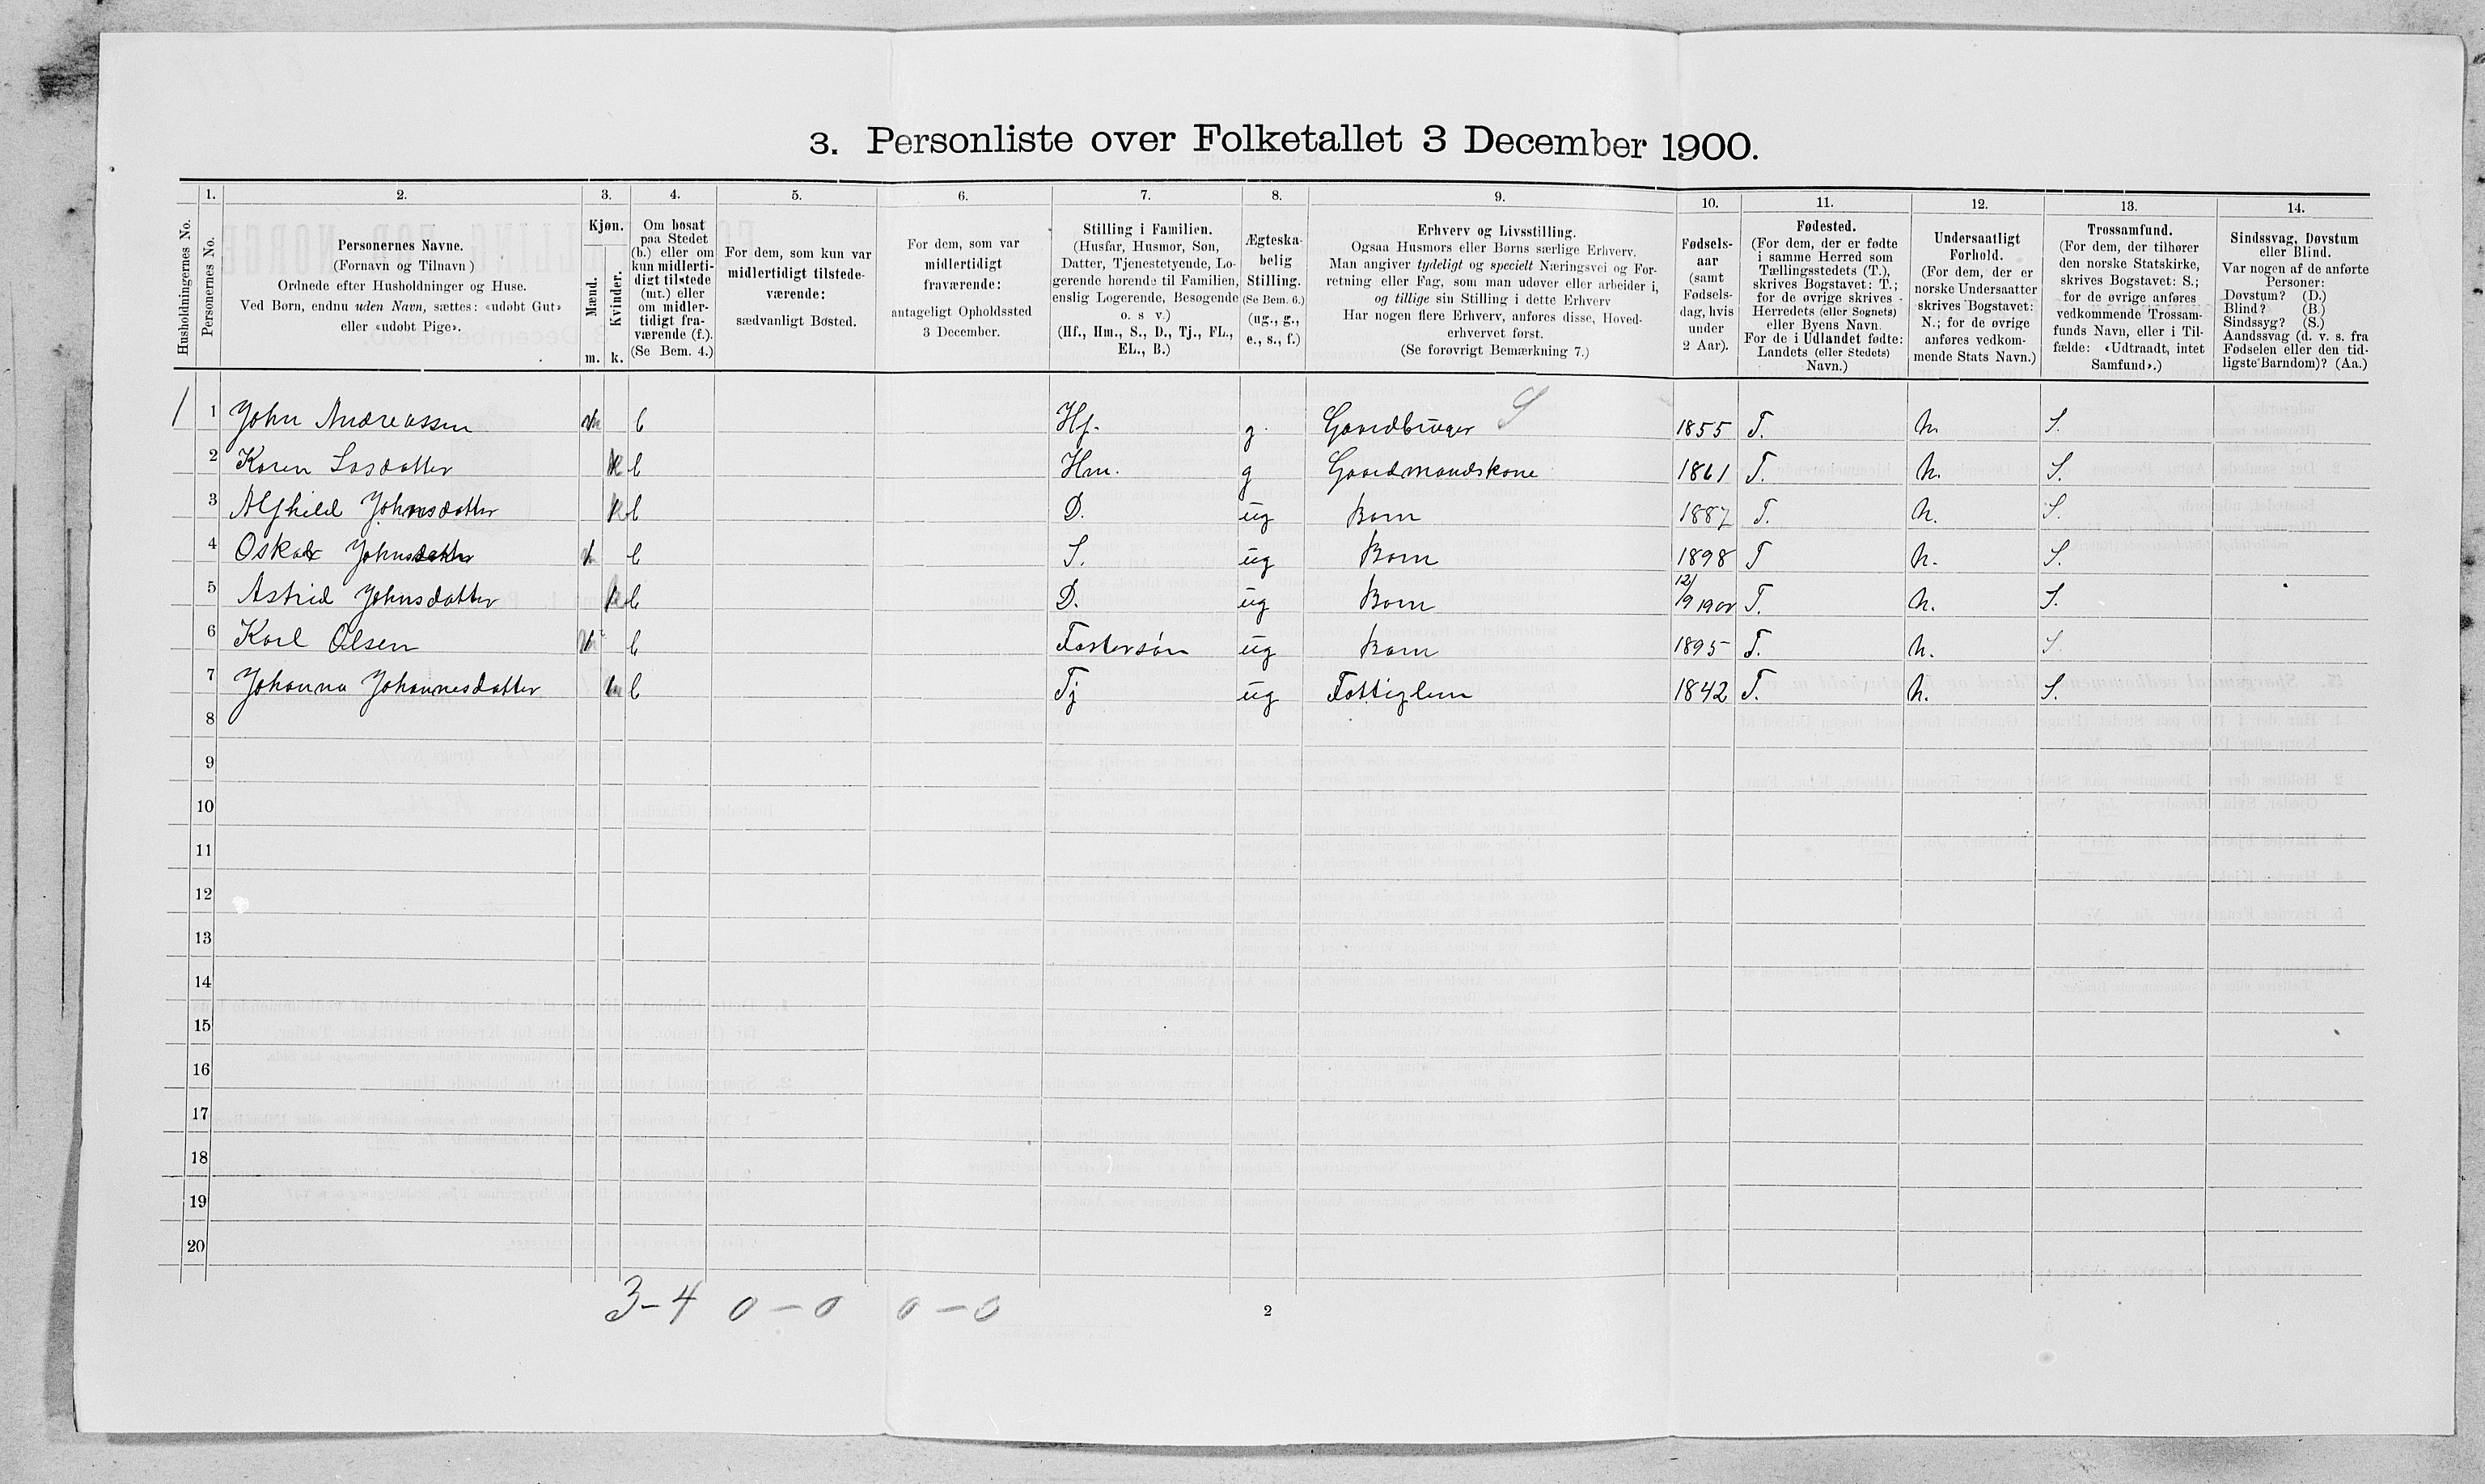 3. Personliste over Folketallet 3 December 1900.
Husholdningernes No.
1.
Personernes No.
2.
Personernes Navne.
(Fornavn og Tilnavn)
Ordnede efter Husholdninger og Huse.
Ved Børn, endnu uden Navn, sættes: «udøbt Gut»
eller «udøbt Pige».
3.
Kjøn.
Mænd.
Kvinder.
m.
k.
4.
Om bosat
paa Stedet
(b.) eller om
kun midlerti-
digt tilstede
(mt.) eller
om midler-
tidigt fra-
værende (f.).
(Se Bem. 4.)
5.
For dem, som kun var
midlertidigt tilstede-
værende:
sædvanligt Bosted.
6.
For dem, som var
midlertidigt
fraværende:
antageligt Opholdssted
3 December.
7.
Stilling i Familien.
(Husfar, Husmor, Søn,
Datter, Tjenestetyende, Lo-
gerende hørende til Familien,
enslig Logerende, Besøgende
o. s v.)
(Hf., Hm., S., D., Tj., FL.,
EL., B.)
8.
Ægteska-
belig
Stilling.
(Se Bem. 6.)
(ug., g.,
e., s., f.)
9.
Erhverv og Livsstilling.
Ogsaa Husmors eller Børns særlige Erhverv.
Man angiver tydeligt og specielt Næringsvei og For-
retning eller Fag, som man udøver eller arbeider i,
og tillige sin Stilling i dette Erhverv
Har nogen flere Erhverv, anføres disse, Hoved-
erhvervet først.
(Se forøvrigt Bemærkning 7.)
10.
Fødsels-
aar
(samt
Fødsels-
dag, hvis
under
2 Aar).
11.
Fødested.
(For dem, der er fødte
i samme Herred som
Tællingsstedets (T.),
skrives Bogstavet: T.;
for de øvrige skrives
Herredets (eller Sognets)
eller Byens Navn.
For de i Udlandet fødte:
Landets (eller Stedets)
Navn.)
12.
Undersaatligt
Forhold.
(For dem, der er
norske Undersaatter
skrives Bogstavet:
N.; for de øvrige
anføres vedkom-
mende Stats Navn.)
13.
Trossamfund.
(For dem, der tilhører
den norske Statskirke,
skrives Bogstavet: S.;
for de øvrige anføres
vedkommende Trossam-
funds Navn, eller i Til-
fælde: «Udtraadt, intet
Samfund».)
14.
Sindssvag, Døvstum
eller Blind.
Var nogen af de anførte
Personer:
Døvstum? (D.)
Blind? (B.)
Sindssyg? (S.)
Aandssvag (d. v. s. fra
Fødselen eller den tid-
ligste Barndom)? (Aa.)
1 1 John Andreassen m b Hf. g. Gaardbruger S 1855 T. N. S.
2 Karen Lasdatter k b Hm. g Gaardmandskone 1861 T. N. S.
3 Alfhild Johnsdatter k b D. ug Barn 1887 T. N. S.
4 Oskar Johnsdatter m b S. ug Barn 1898 T N. S.
5 Astrid Johnsdatter k b D. ug Barn 12/9 1900 T. N. S.
6 Karl Olsen m b Fostersøn ug Barn 1895 T. N. S.
7 Johanna Johannesdatter k b Tj ug Fattiglem 1842 T. N. S.
8
9
10
11
12
13
14
15
16
17
18
19
20
3-4 0-0 0-0
2